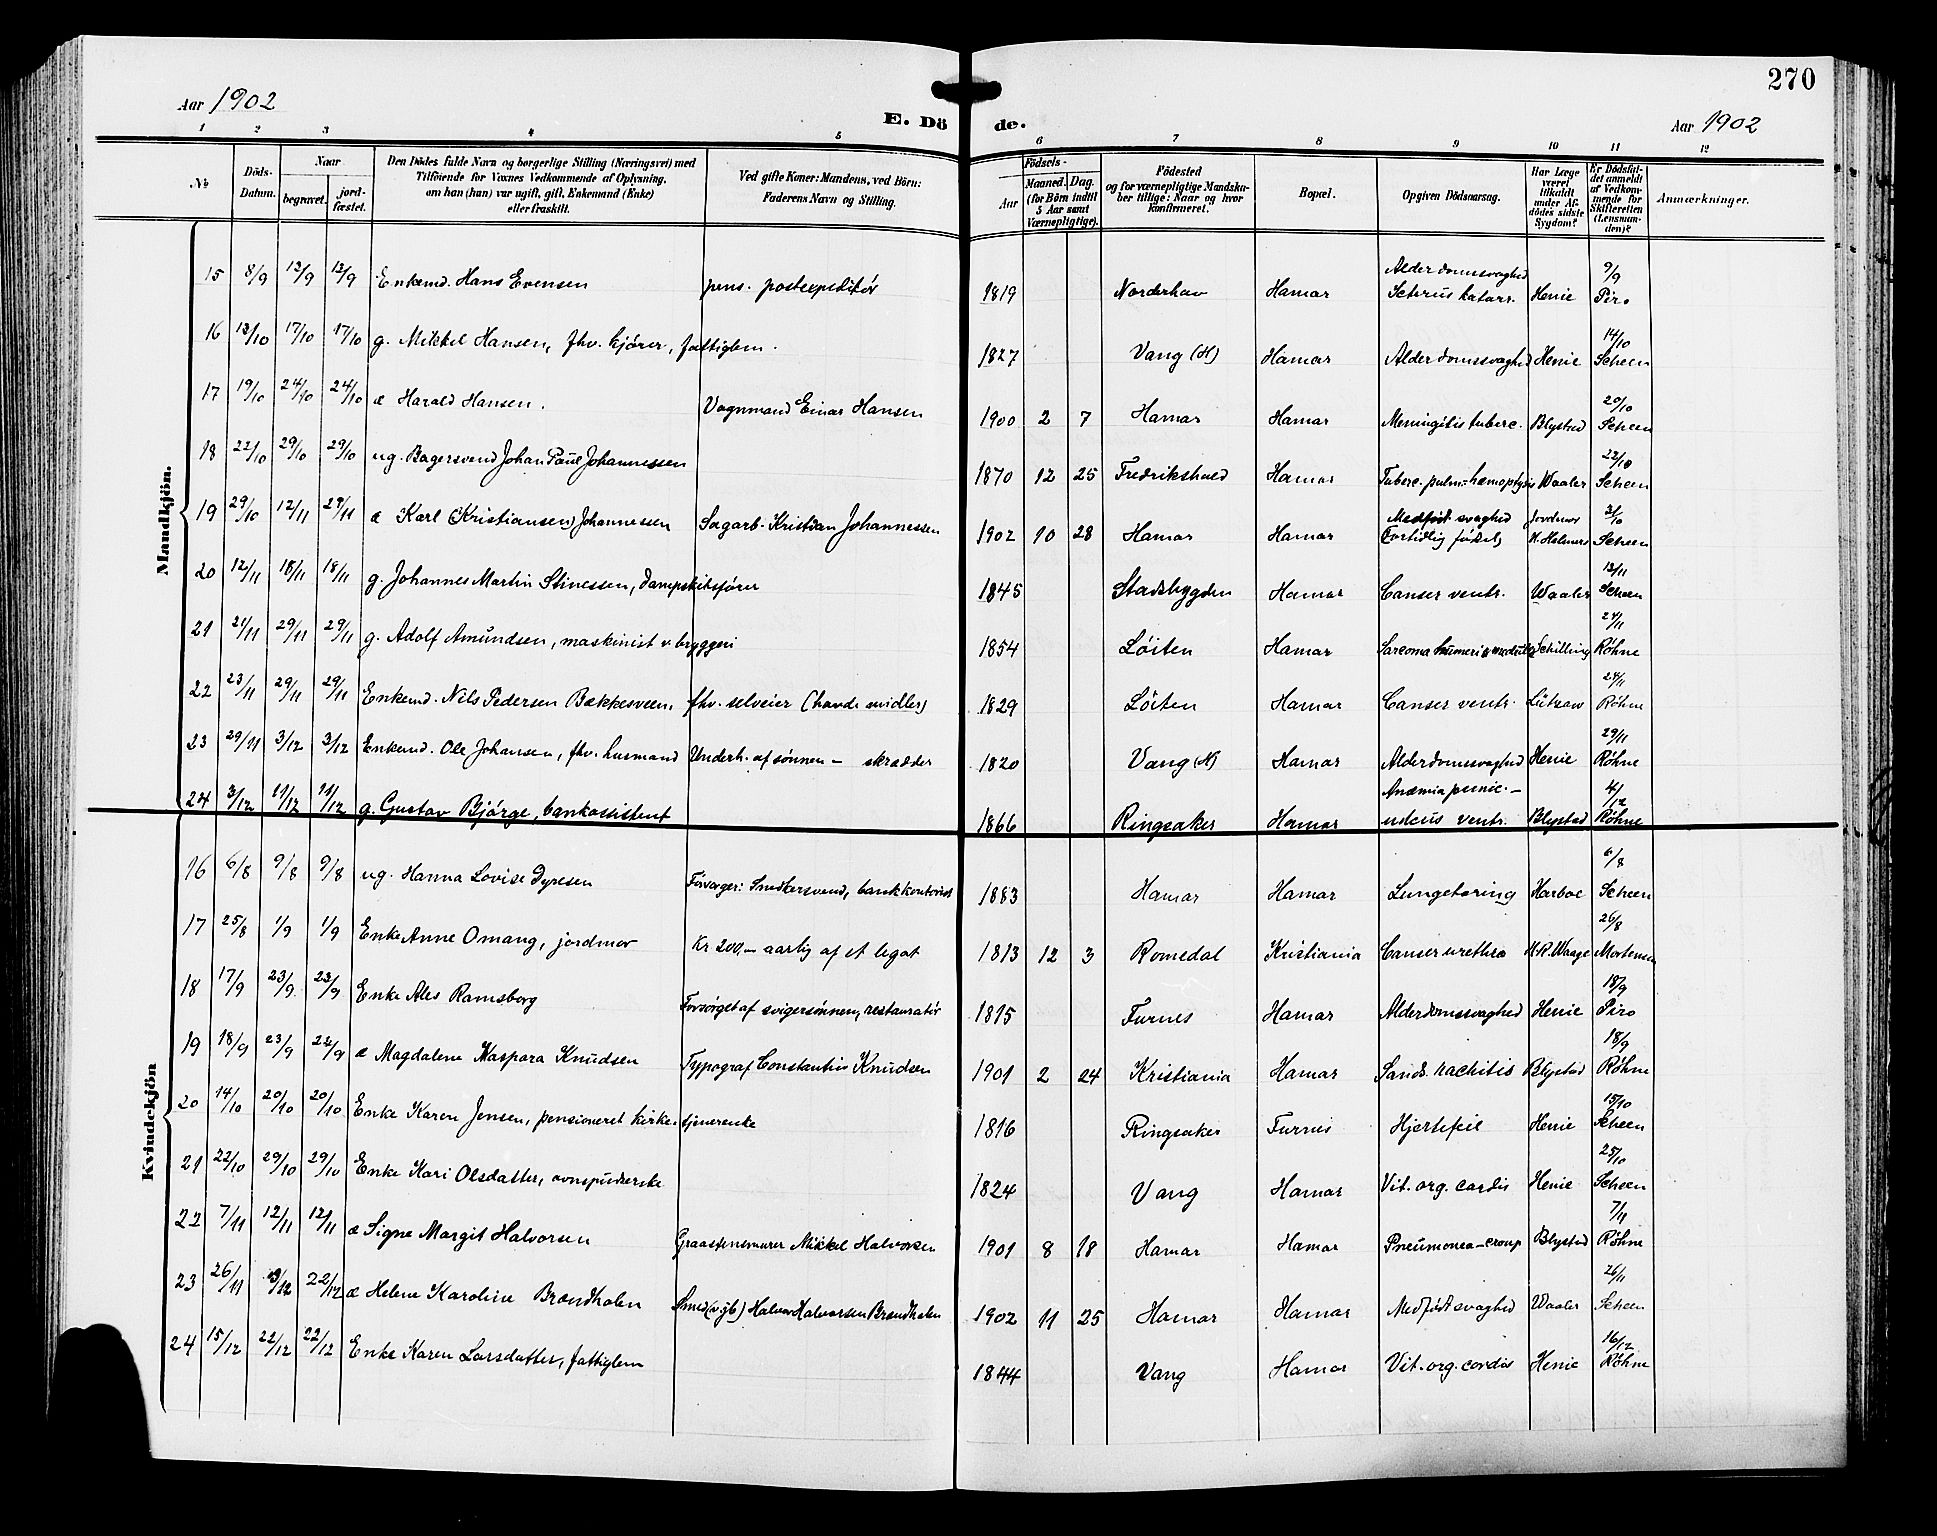 270
Aar 1902
E. Dö de.
Aar 1902
1 2 3 4 5 6 7 8 9 10 11 12
No
Döds-Datum.
Naar
begravet.
jord-fæstet.
Den Dödes fulde Navn og borgerlige Stilling (Næringsvei) med
Tilföiende for Voxnes Vedkommende af Oplysning,
om han (hun) var ugift, gift, Enkemand (Enke)
eller fraskilt.
Ved gifte Koner: Mandens, ved Börn:
Faderens Navn og Stilling.
Födsels-
Aar
Maaned. Dag.
(for Börn indtil
5 Aar samt
Værnepligtige).
Födested
og for værnepligtige Mandska-
ber tillige: Naar og hvor
konfirmeret.
Bopæl.
Opgiven Dödsaarsag.
Har Læge
været
tilkaldt
under Af-
dödes sidste
Sygdom?
Er Dödsfal-
det anmeldt
af Vedkom-
mende for
Skifteretten
(Lensman-
den)?
Anmærkninger.
Mandkjön.
15 8/9 13/9 13/9 Enkemd. Hans Evensen pens. postexpeditör 1819 Norderhov Hamar Alderdomssvaghed katarr. Henie 9/9 Piro
16 13/10 17/10 17/10 g. Mikkel Hansen, fhv. kjörer, fattiglem. 1827 Vang (H) Hamar Alderdomssvaghed Henie 14/10 Scheen
17 19/10 24/10 24/10 æ Harald Hansen. Vognmand Einar Hansen 1900 2 7 Hamar Hamar Meningitis tuberc. Blystad 20/10 Scheen
18 22/10 29/10 29/10 ug. Bagersvend Johan Paul Johannessen 1870 12 25 Fredrikshald Hamar Tuberc. pulm.-hæmoptysis Waaler 22/10 Scheen
19 29/10 12/11 23/11 æ Karl (Kristiansen) Johannessen Sagarb. Kristian Johannessen 1902 10 28 Hamar Hamar Medfödt svaghed Fortidlig födsel Jordmor H. Holmers 31/10 Scheen
20 12/11 18/11 18/11 g. Johannes Martin Stinessen, dampskibsförer 1845 Stadsbygden Hamar Canser ventr. Waaler 13/11 Scheen
21 21/11 29/11 29/11 g. Adolf Amundsen, maskinist v. bryggeri 1854 Löiten Hamar Sarcoma humeri Schilling 24/11 Röhne
22 23/11 29/11 29/11 Enkemd. Nils Pedersen Bækkesveen, fhv. selveier (havde midler) 1829 Löiten Hamar Canser ventr. Lützow 24/11 Röhne
23 29/11 3/12 3/12 Enkemd. Ole Johansen, fhv. husmand Underh. af sönnen – skrædder 1820 Vang (H) Hamar Alderdomssvaghed Henie 29/11 Röhne
24 3/12 11/12 11/12 g. Gustav Björge, bankassistent 1866 Ringsaker Hamar Anæmia pernic. – ulcus ventr. Blystad 4/12 Röhne
Kvindekjön
16 6/8 9/8 9/8 ug. Hanna Lovise Dyresen Forsørger: Snedkersvend, bankkontorist 1883 Hamar Hamar Lungetæring Harboe 6/8 Scheen
17 25/8 1/9 1/9 Enke Anne Omang, jordmor Kr 200,– aarlig af et legat 1813 12 3 Romedal Kristiania Canser urethra H. R. Waage 26/8 Mortensen
18 17/9 23/9 23/9 Enke Ales Ramsborg Forsörget af svigersönnen, restauratör 1815 Furnes Hamar Alderdomssvaghed Henie 18/9 Piro
19 18/9 23/9 22/9 æ Magdalene Kaspara Knudsen Typograf Constantin Knudsen 1901 2 24 Kristiania Hamar Sands. rachitis Blystad 18/9 Röhne
20 14/10 20/10 20/10 Enke Karen Jensen, pensioneret kirketjenerenke 1816 Ringsaker Furnes Hjertefeil Henie 15/10 Scheen
21 22/10 29/10 29/10 Enke Kari Olsdatter, ovnspudserske 1824 Vang Hamar Vit. org. cordis Henie 25/10 Scheen
22 7/11 12/11 12/11 æ Signe Margit Halvorsen Graastensmurer Mikkel Halvorsen 1901 8 18 Hamar Hamar Pneumonea – croup Blystad 7/11 Röhne
23 26/11 /12 22/12 æ Helene Karoline Brændholen Smed (v. jb.) Halvor Halvorsen Brændholen 1902 11 25 Hamar Hamar Medfödt svaghed Waaler 26/11 Scheen
24 15/12 22/12 22/12 Enke Karen Larsdatter, fattiglem 1844 Vang Hamar Vit. org. cordis Henie 16/12 Röhne